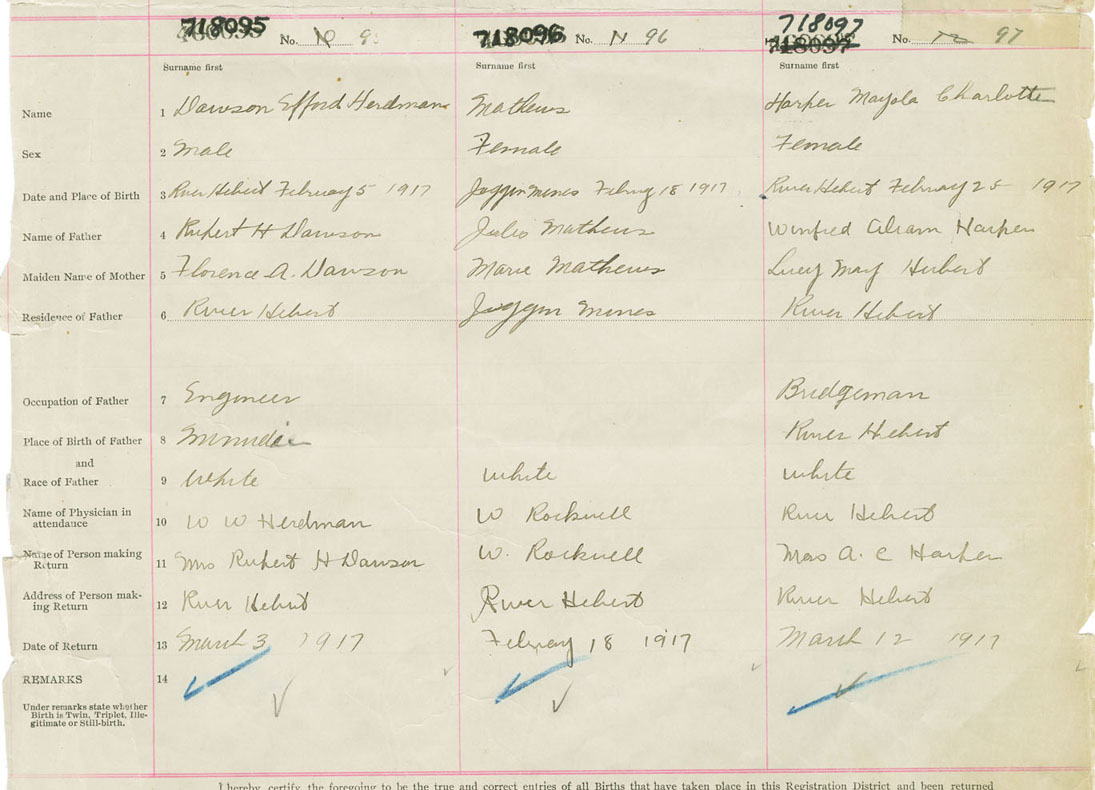 718095 No. 10 95 718096 No. 11 96 718097 No. 12 97
718097
Surname first Surname first Surname first
Name 1 Dawson Efford Herdman Mathews Harper Mayola Charlotte
Sex 2 Male Female Female
Date and Place of Birth 3 River Hebert February 5 1917 Joggin Mines Febury 18 1917 River Hebert February 25 1917
Name of Father 4 Rupert H Dawson Julio Mathews Winfred Alram Harper
Maiden Name of Mother 5 Florence A. Dawson Marie Mathews Lucy May Herbert
Residence of Father 6 River Hebert Joggin Mines River Hebert
Occupation of Father 7 Engineer Bridgeman
Place of Birth of Father 8 Minudie River Hebert
and
Race of Father 9 White White White
Name of Physician in
attendance 10 W W Herdman W Rockwell River Hebert
Name of Person making
Return 11 Mrs Rupert H Dawson W. Rockwell Mrs A. C Harper
Address of Person mak-
ing Return 12 River Hebert River Hebert River Hebert
Date of Return 13 March 3 1917 Febuary 18 1917 March 12 1917
REMARKS 14
Under remarks state whether
Birth is Twin, Triplet, Ille-
gitimate or Still-birth.
I hereby certify the foregoing to be the true and correct entries of all Births that have taken place in this Registration District and been returned